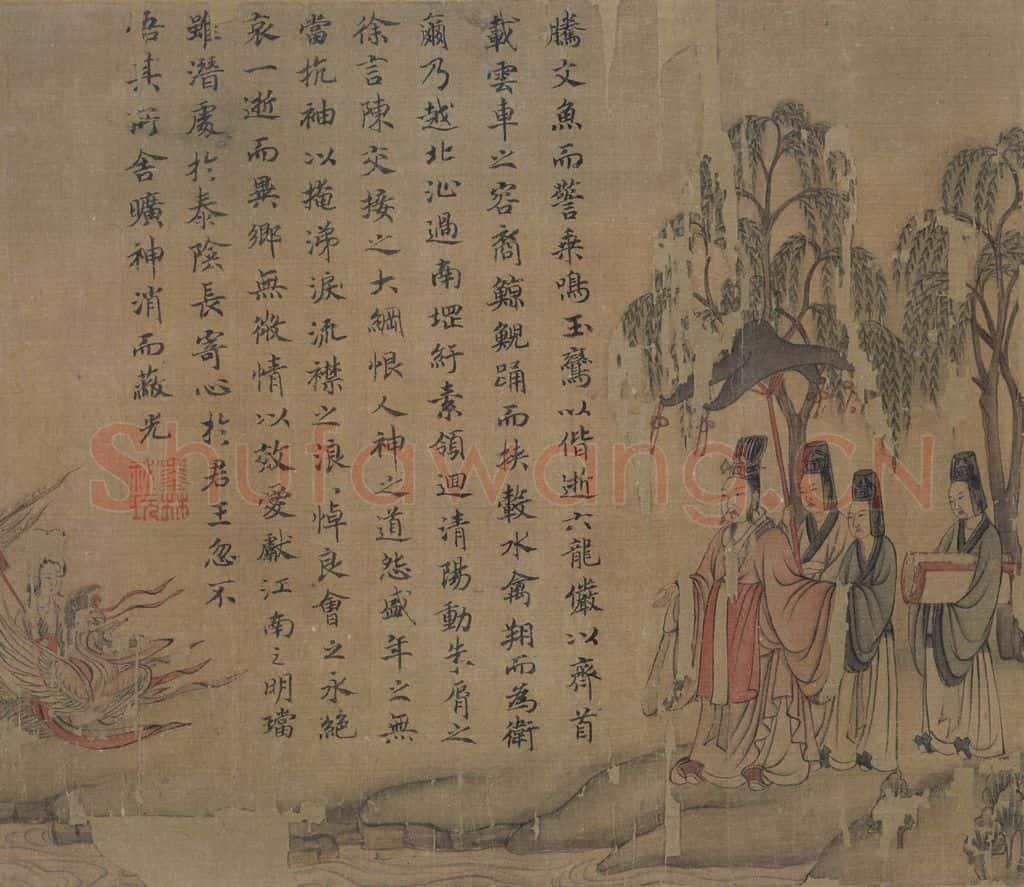 騰文魚而警乘鳴玉鸞以偕逝六龍儼以齊首
載雲車之容裔鯨鯢踊而挾轂水禽翔而為衛
爾乃越北沚過南堽紆素領迴清陽動朱脣之
徐言陳交接之大綱恨人神之道怨盛年之無
當抗袖以掩涕淚流襟之浪、悼良會之永絕
哀一逝而異鄉無微情以效愛獻江南之明璫
雖潛處於泰陰長寄心於君王忽不
悟其所舍曠神消而蔽光
Shufawang.CN